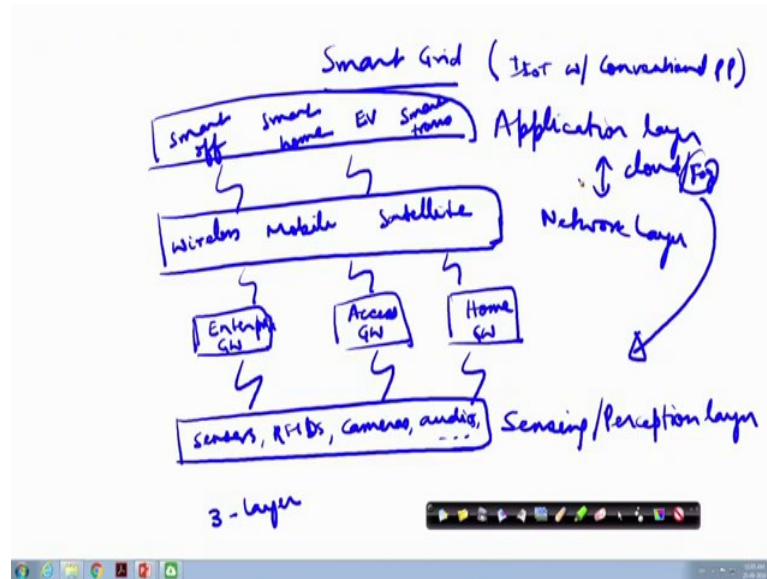 Smart Grid (IIoT w/ Conventional PP)
Smart off Smart home EV Smart trans
Application layer
cloud/Fog
Wireless Mobile Satellite
Network Layer
Enterp GW Access GW Home GW
sensors, RFIDs, Cameras, audios, ...
Sensing/Perception layer
3-layer